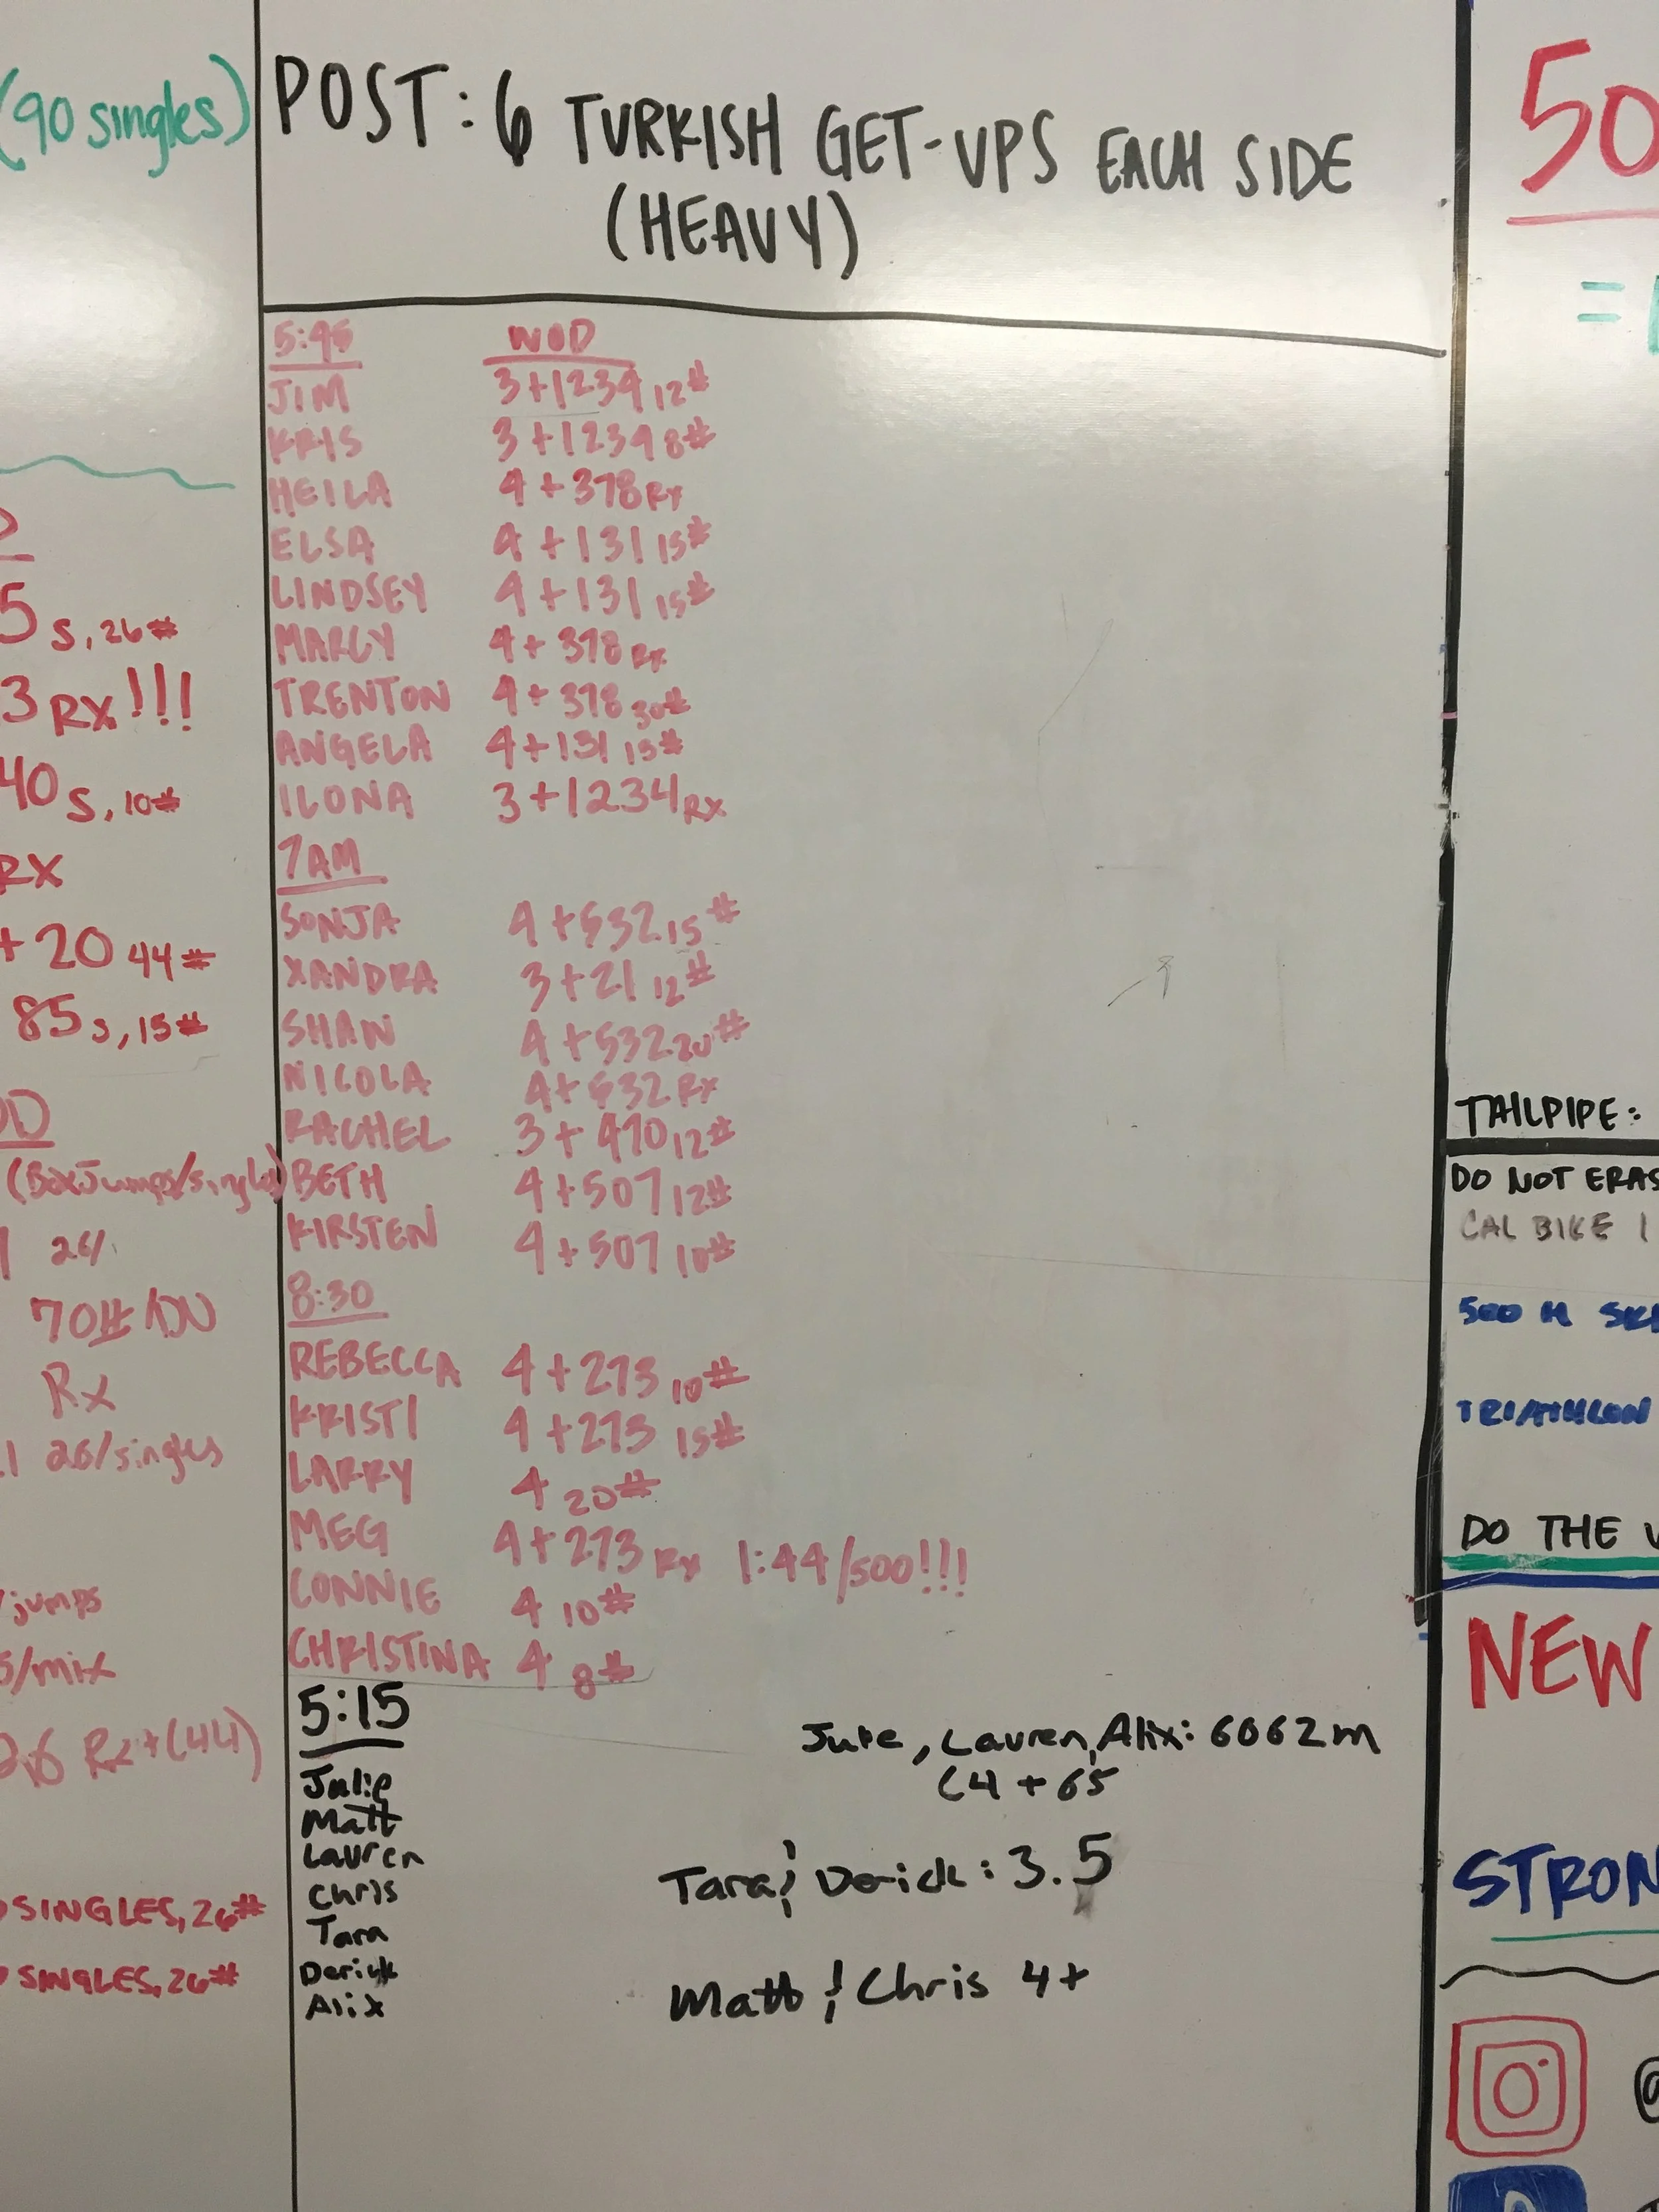 (90 singles)
POST: 6 TURKISH GET-UPS EACH SIDE
(HEAVY)
5:45 WOD
JIM 3+1234 12#
KRIS 3+1234 8#
HEILA 4+378 Rx
ELSA 4+131 15#
LINDSEY 4+131 15#
MARCY 4+378 Rx
TRENTON 4+378 30#
ANGELA 4+131 15#
ILONA 3+1234 Rx
7AM
SONJA 4+532 15#
XANDRA 3+21 12#
SHAN 4+532 20#
NICOLA 4+532 Rx
RACHEL 3+490 12#
BETH 4+507 12#
KIRSTEN 4+507 10#
8:30
REBECCA 4+273 10#
KRISTI 4+273 15#
LARRY 4 20#
MEG 4+273 Rx 1:44/500!!!
CONNIE 4 10#
CHRISTINA 4 8#
5:15
Julie
Matt
Lauren
Chris
Tara
Derick
Alix
Julie, Lauren, Alix: 6062m
(4 + 65
Tara & Derick: 3.5
Matt & Chris 4+
5 S, 26#
3 RX!!!
40 S, 10#
RX
+ 20 44#
85 S, 15#
(Box Jumps/singles)
70#/DU
Rx
26/singles
/jumps
/mix
26 Rx+(44)
SINGLES, 26#
SINGLES, 26#
50
=
TAILPIPE:
DO NOT ERAS
CAL BIKE 1
500 M SK
TRIATHLON
DO THE
NEW
STRON
@